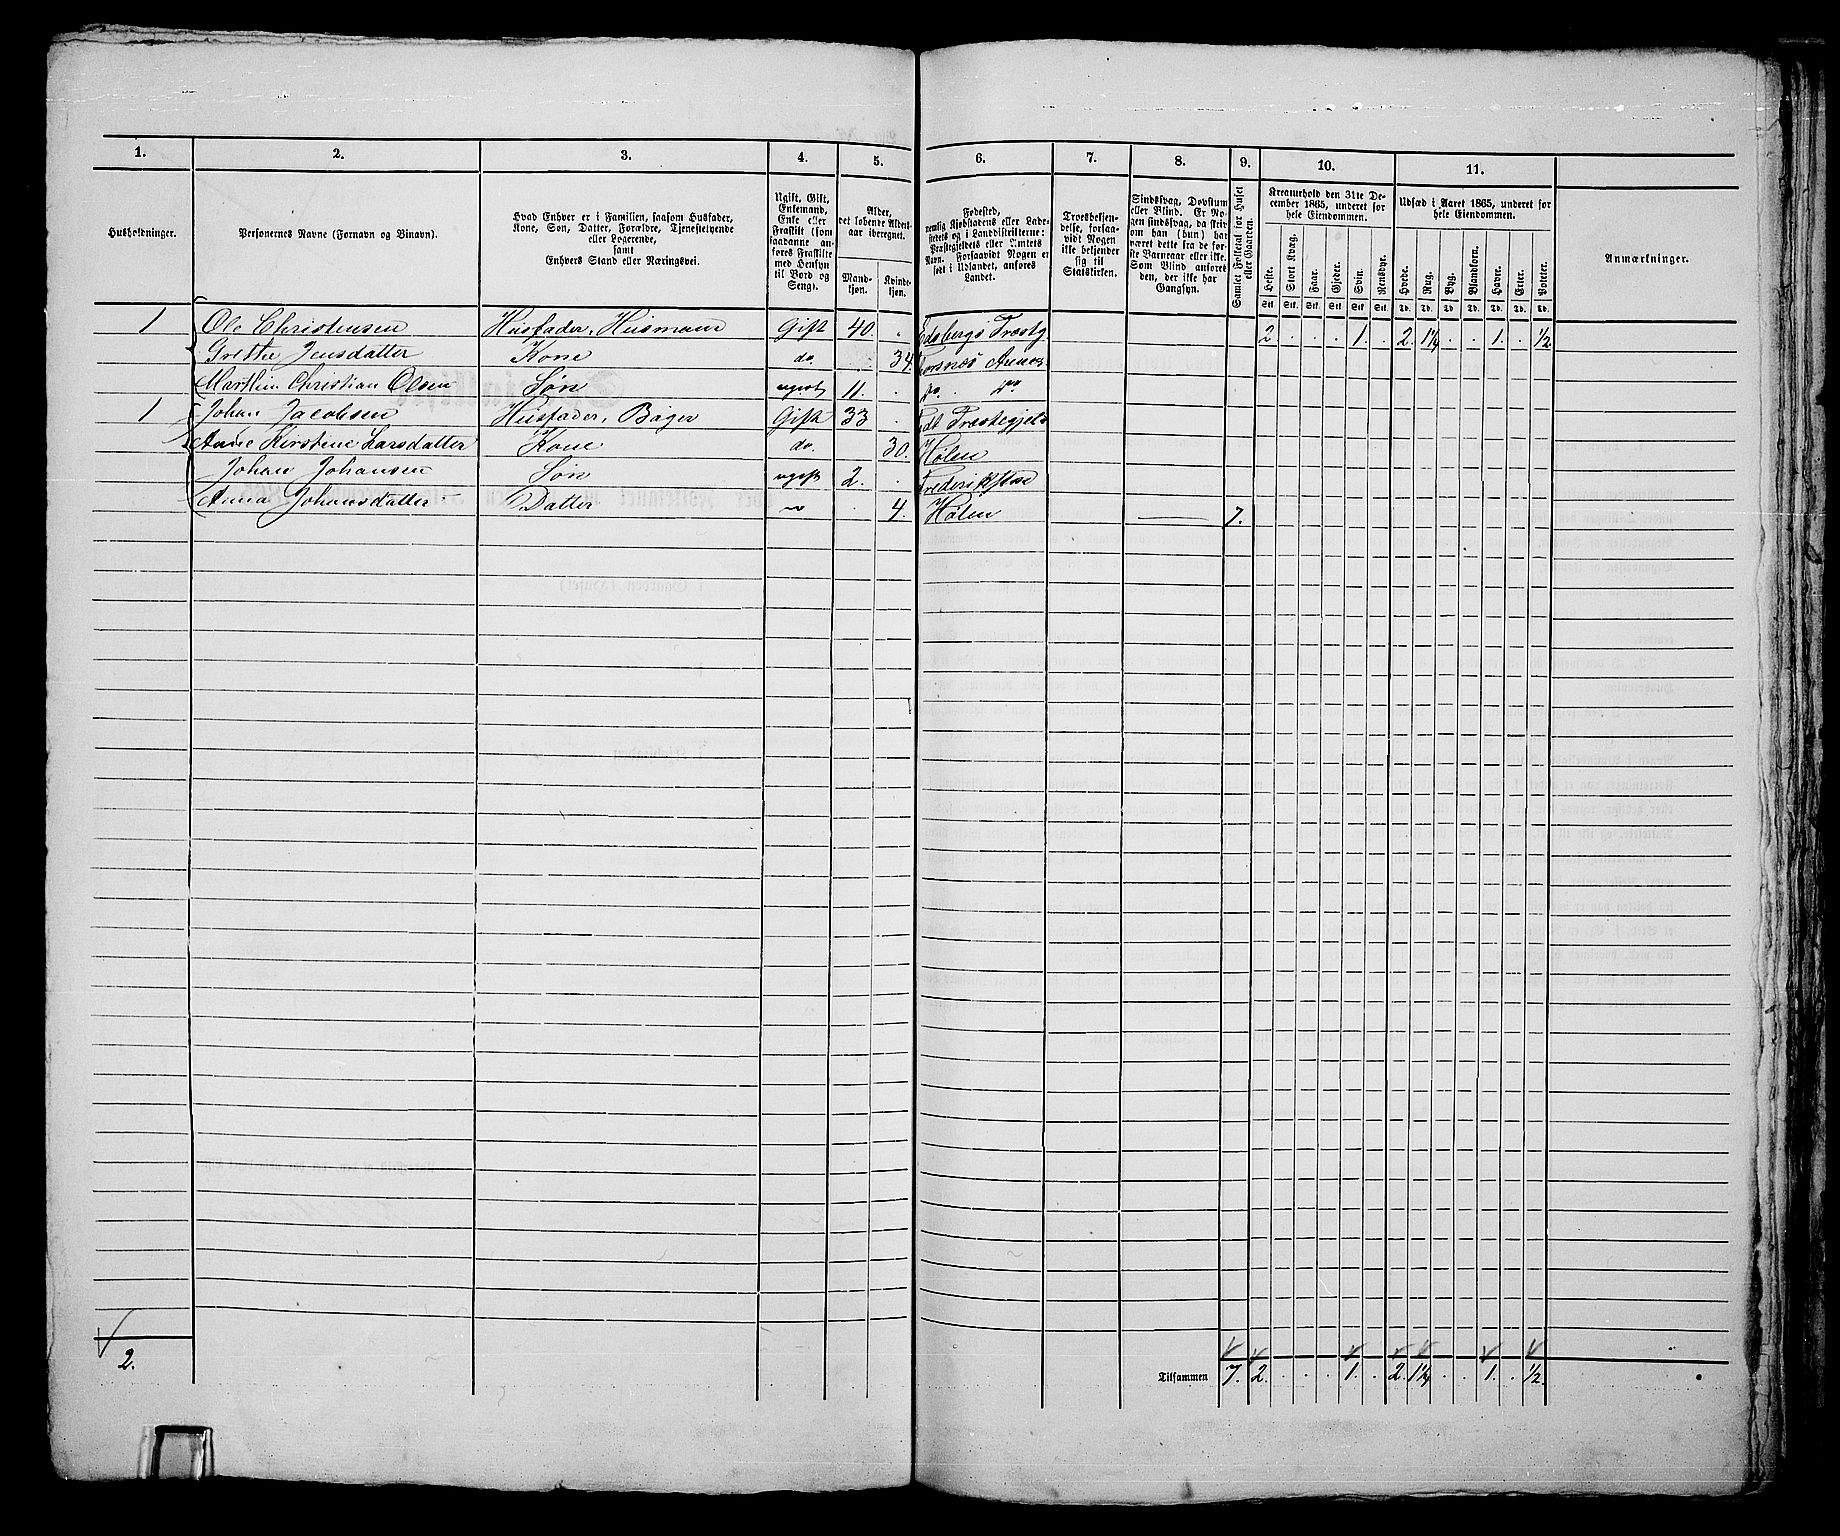 1. 2. 3. 4. 5. 6. 7. 8. 9. 10. 11.
Husholdninger.
Personernes Navne (Fornavn og Binavn).
Hvad Enhver er i Familien, saasom Husfader,
Kone, Søn, Datter, Forældre, Tjenestetyende
eller Logerende,
samt
Enhvers Stand eller Næringsvei.
Ugift, Gift,
Enkemand,
Enke eller
Fraskilt (som
saadanne an-
føres Fraskilte
med Hensyn
til Bord og
Seng).
Alder,
det løbende Alders-
aar iberegnet.
Mand-
kjøn.
Kvinde-
kjøn.
Fødested,
nemlig Kjøbstadens eller Lade-
stedets og i Landdistrikterne:
Præstegjeldets eller Amtets
Navn. Forsaavidt Nogen er
født i Udlandet, anføres
Landet.
Troesbekjen-
delse, forsaa-
vidt Nogen
ikke bekjender
sig til
Statskirken.
Sindssvag, Døvstum
eller Blind. Er No-
gen sindssvag, da skriv
om han (hun) har
været dette fra de før-
ste Barneaar eller ikke.
Som Blind anføres
den, der ikke har
Gangsyn.
Samlet Folketal for Huset
eller Gaarden.
Kreaturhold den 31te De-
cember 1865, underet for
hele Eiendommen.
Heste. Stort Kvæg. Faar. Gjeder. Svin. Rensdyr.
Stk. Stk. Stk. Stk. Stk. Stk.
Udsæd i Aaret 1865, underet for
hele Eiendommen.
Hvede. Rug. Byg. Blandkorn. Havre. Erter. Poteter.
Td. Td. Td. Td. Td. Td. Td.
Anmærkninger.
1 Ole Christensen Husfader, Husmand Gift 40. „ Edsbergs Præstg. 2 . . . 1 . 2 1¼ . . 1 . ½
Grethe Jensdatter Kone do. 34.
Marthin Christian Olsen Søn ugivt 11. . do. do
1 Johan Jacobsen Husfader, Bager Gift 33 . Præstegjeld
Anne Kirstine Larsdatter Kone do. 30. Hølen
Johan Johansen Søn ugift 2. . Frederikstad
Anna Johansdatter Datter „ . 4. Hølen — 7.
2.
Tilsammen 7. 2. . . . 1. . 2 1¼ . . 1. . ½.